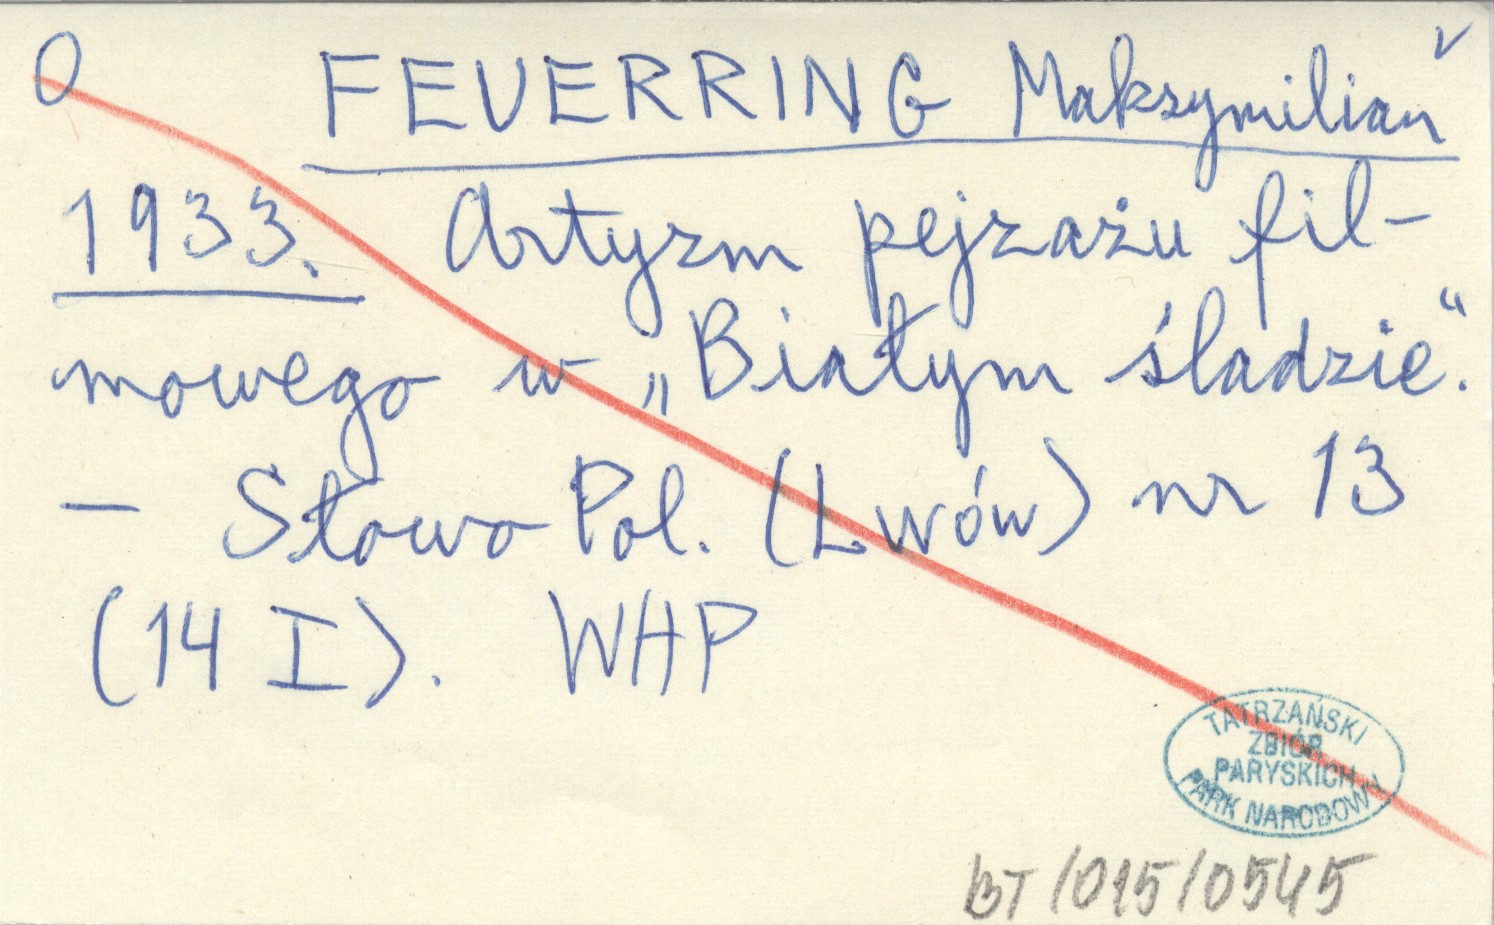 0 FEUERRING Maksymilian v
1933. Artyzm pejzażu fil-
mowego w „Białym śladzie“.
— Słowo Pol. (Lwów) nr 13
(14 I). WHP
TATRZAŃSKI
ZBIÓR
PARYSKICH
PARK NARODOWY
BT/015/0545